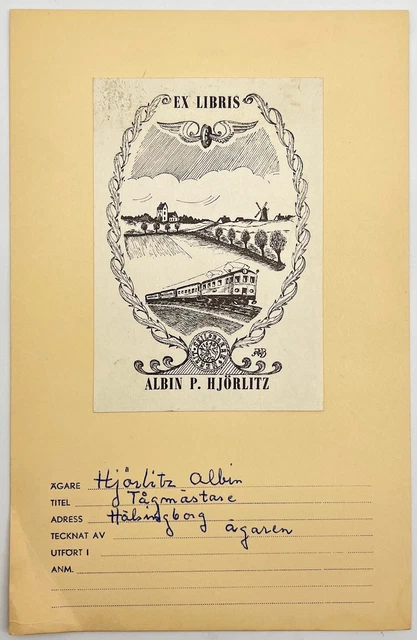 EX LIBRIS
ALBIN P. HJÖRLITZ
ÄGARE Hjörlitz Albin
TITEL Tågmästare
ADRESS Hälsingborg
TECKNAT AV ägaren
UTFÖRT I
ANM.